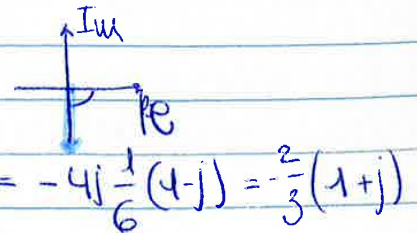 Im
Re
= -4j \frac{1}{6} (1-j) = -\frac{2}{3} (1+j)